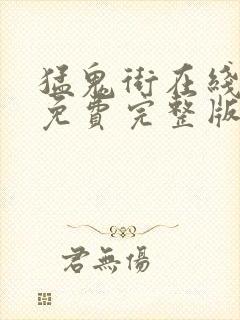 猛鬼街在线
免費完整版
君無傷